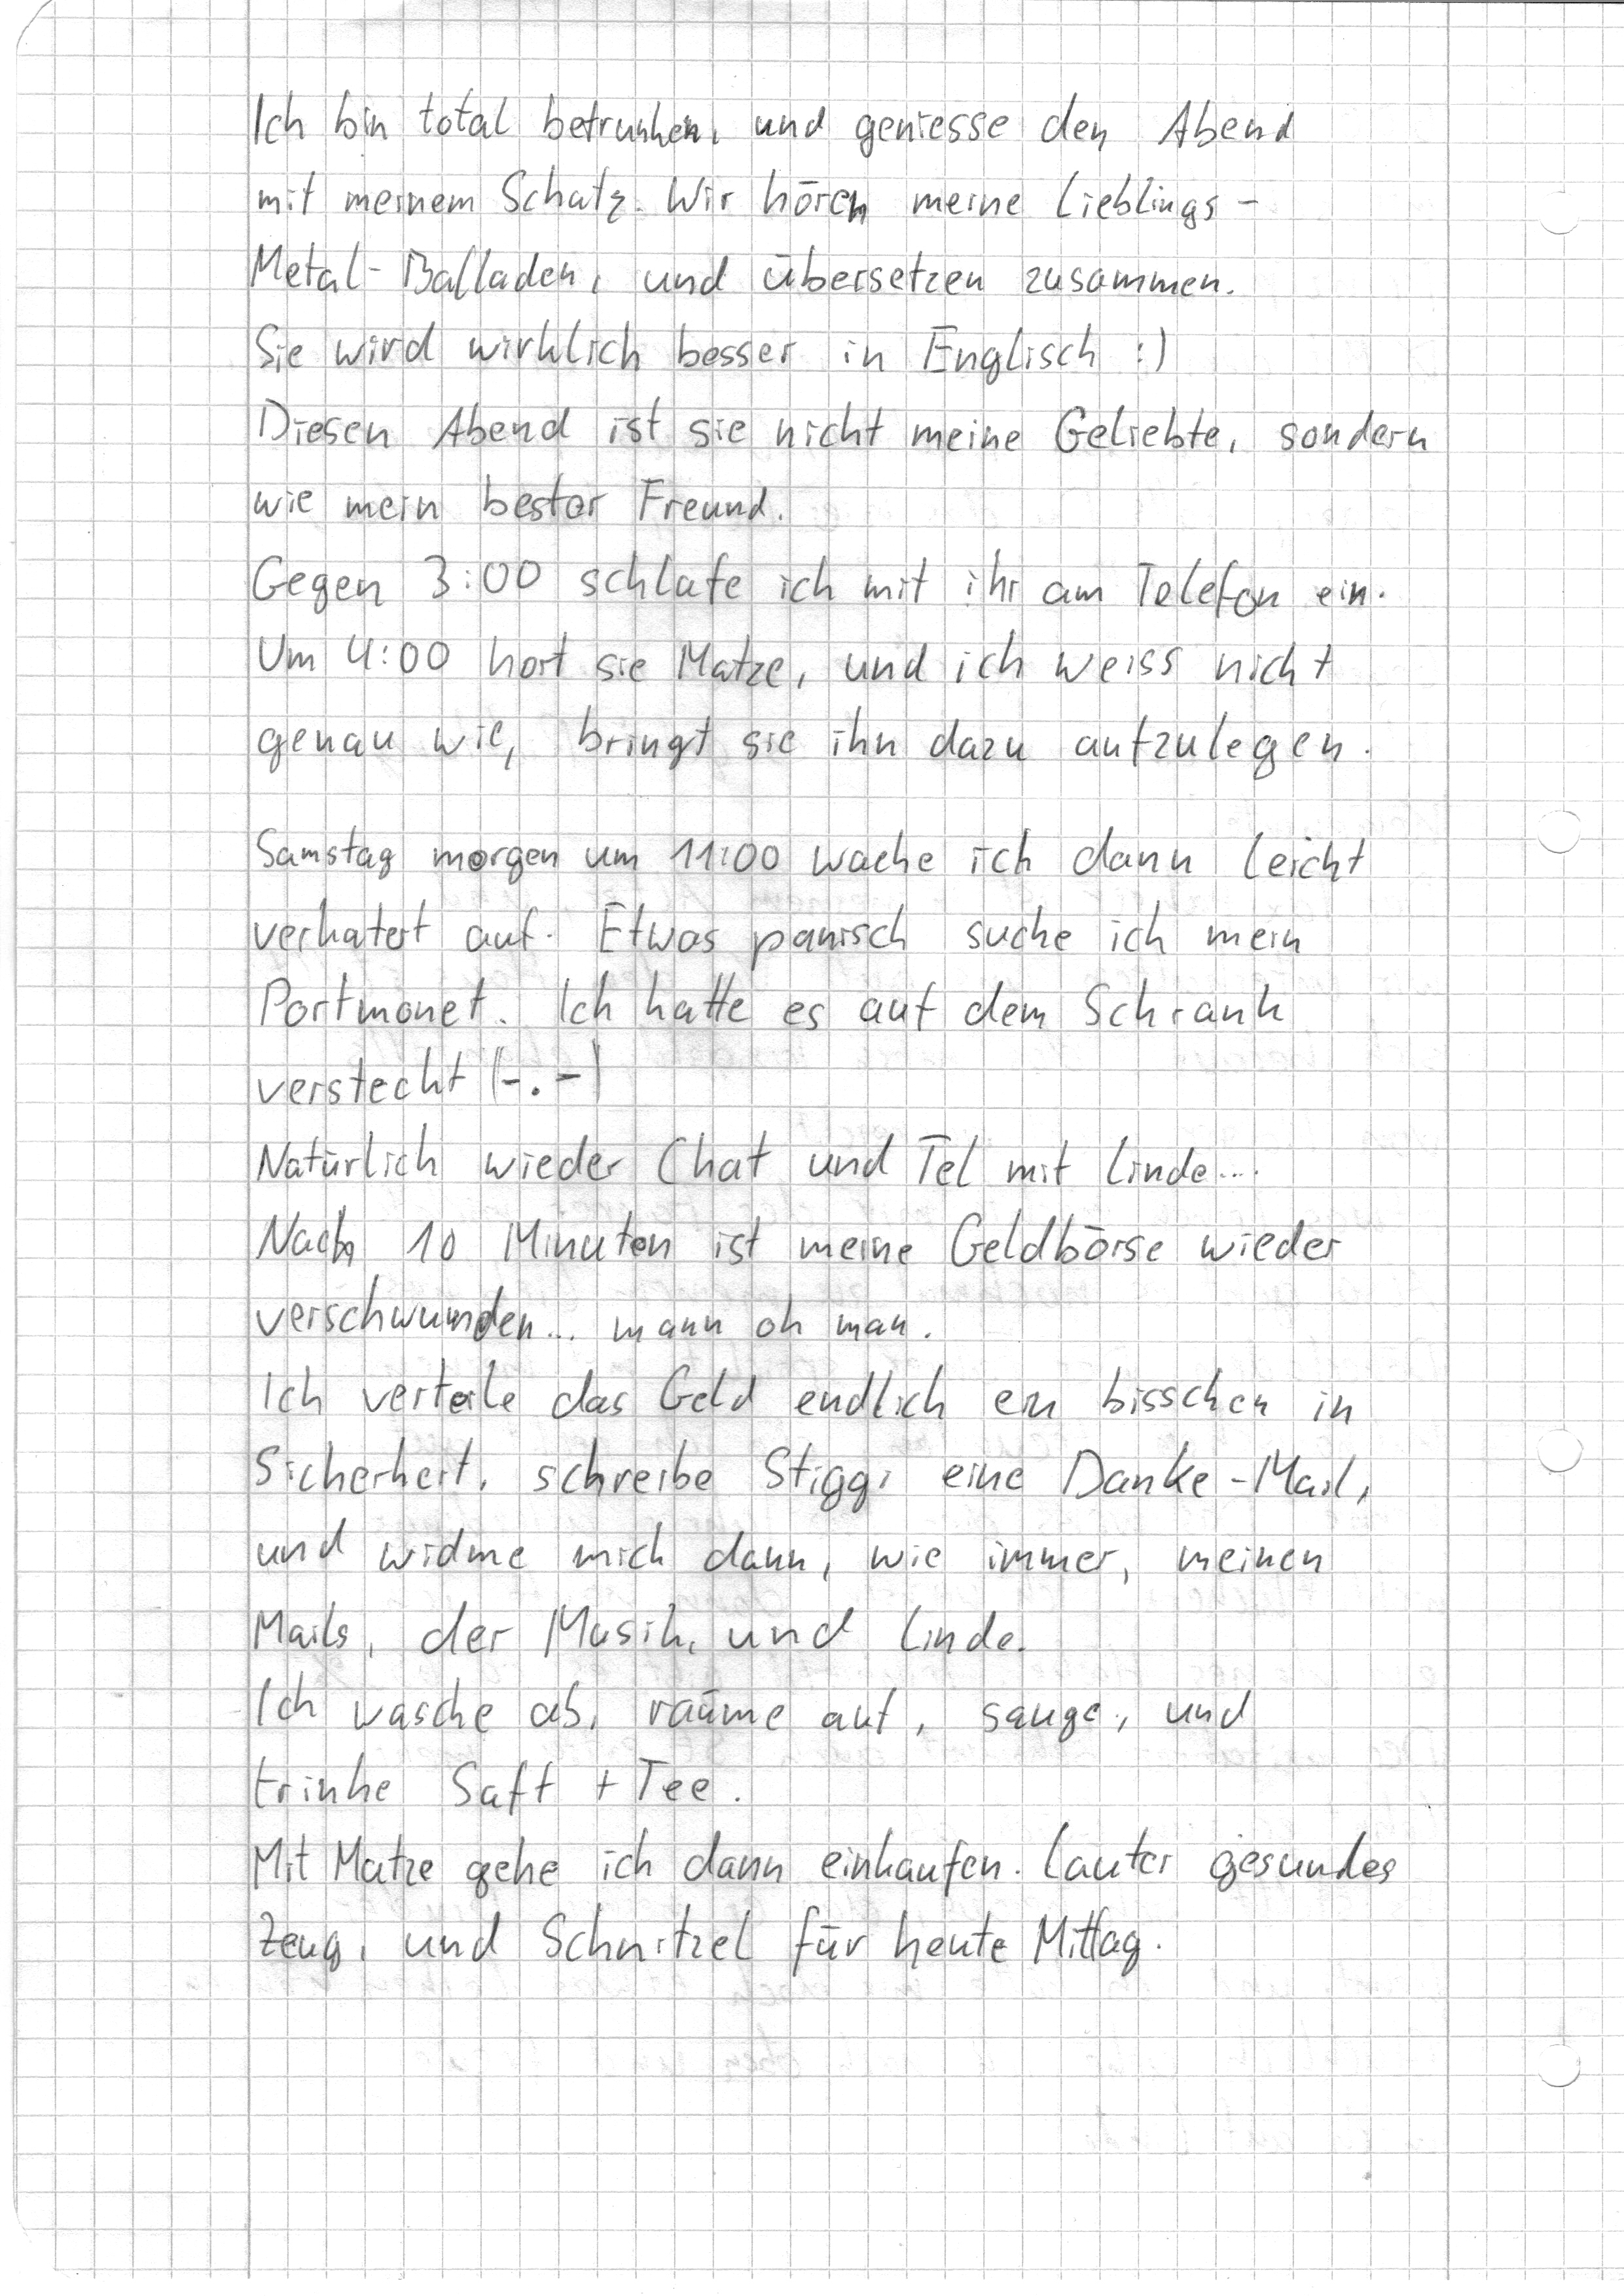 Ich bin total betrunken, und geniesse den Abend
mit meinem Schatz. Wir hören meine Lieblings-
Metal-Balladen, und übersetzen zusammen.
Sie wird wirklich besser in Englisch :)
Diesen Abend ist sie nicht meine Geliebte, sondern
wie mein bester Freund.
Gegen 3:00 schlafe ich mit ihr am Telefon ein.
Um 4:00 hört sie Matze, und ich weiss nicht
genau wie, bringt sie ihn dazu aufzulegen.
Samstag morgen um 11:00 wache ich dann leicht
verkatert auf. Etwas panisch suche ich mein
Portmonet. Ich hatte es auf dem Schrank
versteckt (-.-)
Natürlich wieder Chat und Tel mit Linde...
Nach 10 Minuten ist meine Geldbörse wieder
verschwunden... mann oh man.
Ich verteile das Geld endlich ein bisschen in
Sicherheit, schreibe Stiggi eine Danke-Mail,
und widme mich dann, wie immer, meinen
Mails, der Musik, und Linde.
Ich wasche ab, räume auf, sauge, und
trinke Saft + Tee.
Mit Matze gehe ich dann einkaufen. Lauter gesundes
Zeug, und Schnitzel für heute Mittag.